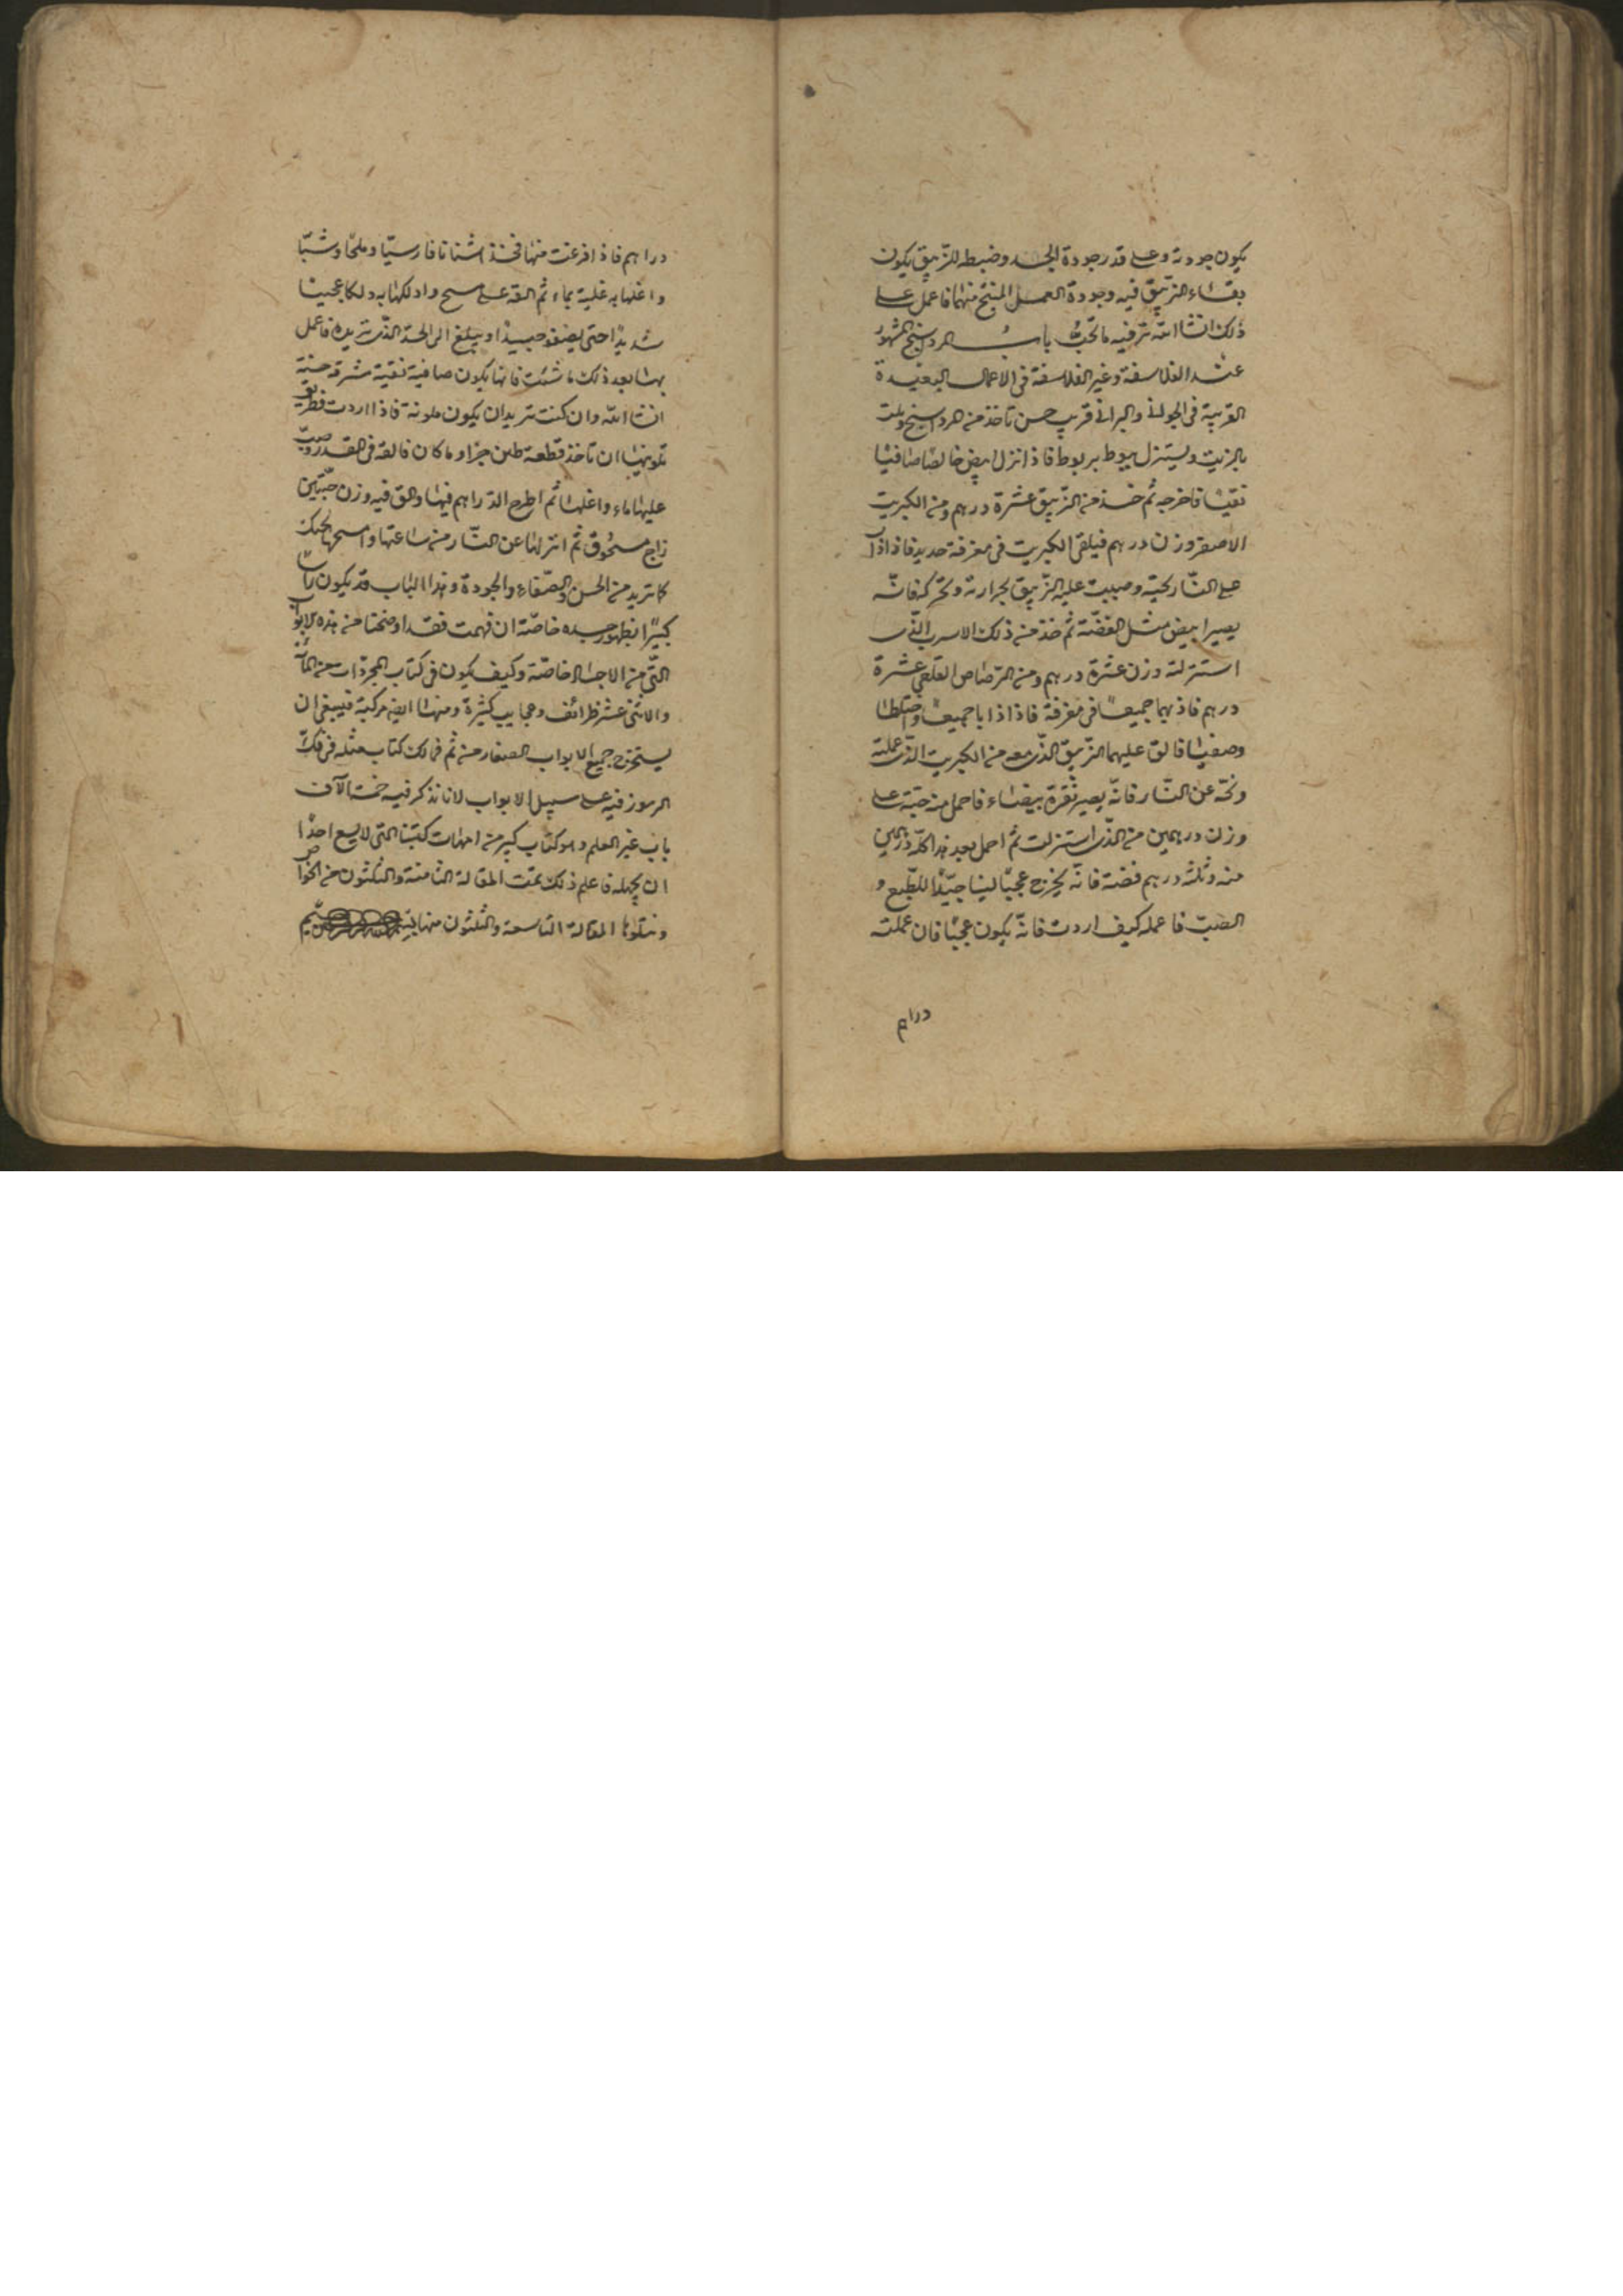 يكون جودته وعلى قدر جودة الجسد وضبطه للزيبق يكون
بقاء الزيبق فيه وجودة العمل المنتج منهما فاعمل على
ذلك انشا الله تر فيه ما تحب باب المشهور
عند الفلاسفة وغير الفلاسفة فى الاعمال البعيدة
القريبة فى الجوانى والبرانى قريب حسن تاخذ من ويلت
بالزيت ويستنزل ببوط بربوط فاذا نزل ابيض خالصا صافيا
نقيا فاخرجه ثم خذ من الزيبق عشرة درهم ومن الكبريت
الاصفر وزن درهم فيلقى الكبريت فى مغرفة حديد فاذا ذاب
على النار نحيته وصببت عليه الزيبق بحرارته وتحركه فانه
يصير ابيض مثل الفضة ثم خذ من ذلك الاسرب الذى
استنزلته وزن عشرة درهم ومن الرصاص القلعى عشرة
درهم فاذبهما جميعا فى مغرفة فاذا ذابا جميعا واختلطا
وصفيا فالق عليهما الزيبق الذى معه من الكبريت الذى عملته
ونحه عن النار فانه يصير نقرة بيضاء فاحمل منه حبة على
وزن درهمين من الذى استنزلت ثم احمل بعد هذا كله درهمين
منه وثلثه درهم فضة فانه يخرج عجيبا لينا جيدا للطبع و
الصب فاعمله كيف اردت فانه يكون عجيبا فان عملته
دراهم
دراهم فاذا فرغت منها فخذ اشنانا فارسيا وملحا وشبا
واغلها به غلية بماء ثم القه على مسح وادلكها به دلكا عجيبا
شديدا حتى يصفو جيدا ويبلغ الى الحد الذى تريده فاعمل
بها بعد ذلك ما شئت فانها يكون صافية نقية مشرقة حسنة
انشا الله وان كنت تريد ان يكون ملونة فاذا اردت فطريق
تلوينها ان تاخذ قطعة طين او ما كان فالقه فى القدر وصب
عليها ماء واغلها ثم اطرح الدراهم فيها والق فيه وزن حبتين
زاج مسحوق ثم انزلها عن النار من ساعتها وامسحها
كما تريد من الحسن والصفاء والجودة وهذا الباب قد يكون بابا
كبيرا بظهور جسده خاصة ان فهمت فقد اوضحنا من هذه الابواب
التى من الاجساد خاصة وكيف يكون فى كتاب المجردات من المائة
والاثنى عشر ظرائف وعجايب كثيرة ومنها ايضا مركبة فينبغى ان
يستخرج جميع الابواب الصغار منه ثم فى لك كتاب مثله فى فك
الرموز فيه على سبيل الابواب لانا نذكر فيه خمسة الآف
باب غير العلم وهو كتاب كبير من امهات كتبنا التى لا يسع احدا
ان يجهله فاعلم ذلك تمت المقالة الثامنة والثلثون من الخواص
ونتلوها المقالة التاسعة والثلثون منها